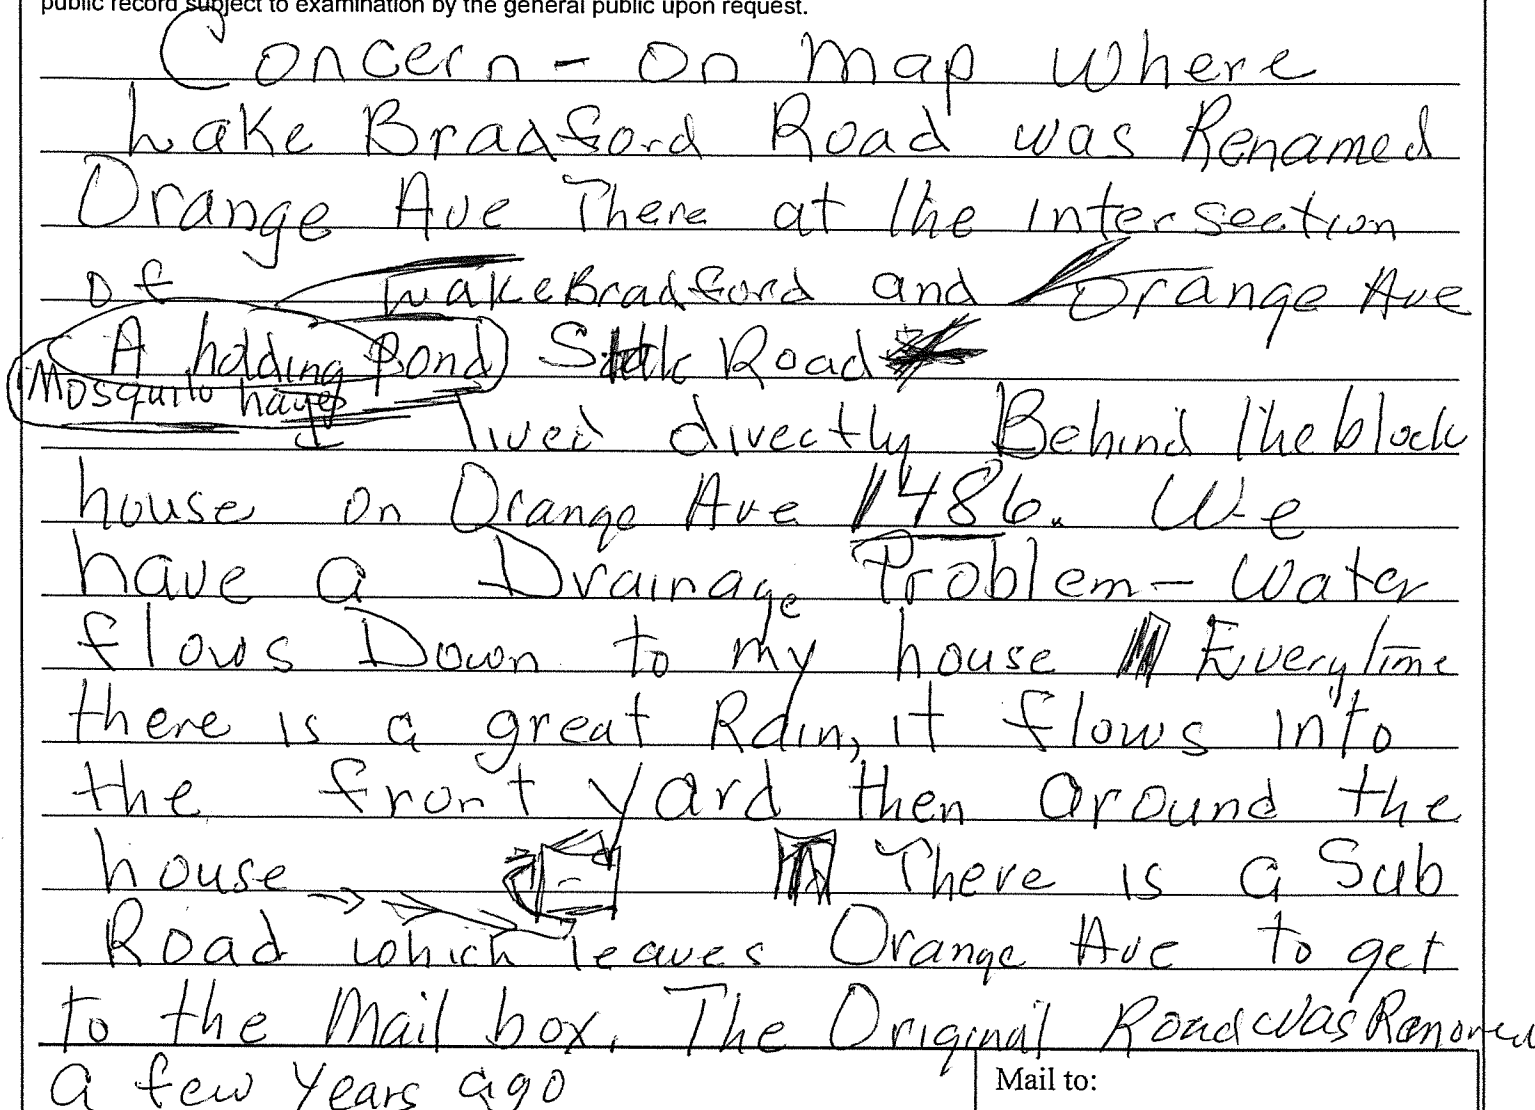 public record subject to examination by the general public upon request.
Concern - On Map where
Lake Bradford Road was Renamed
Orange Ave There at the intersection
of Lake Bradford and Orange Ave
A holding Pond) Road
Mosquito
lived directly Behind the block
house on Orange Ave 1486. We
have a Drainage Problem - Water
flows Down to my house Every time
there is a great Rain, it flows into
the front yard then around the
house There is a Sub
Road which leaves Orange Ave to get
to the Mail box. The Original Road was Removed
a few years ago
Mail to: